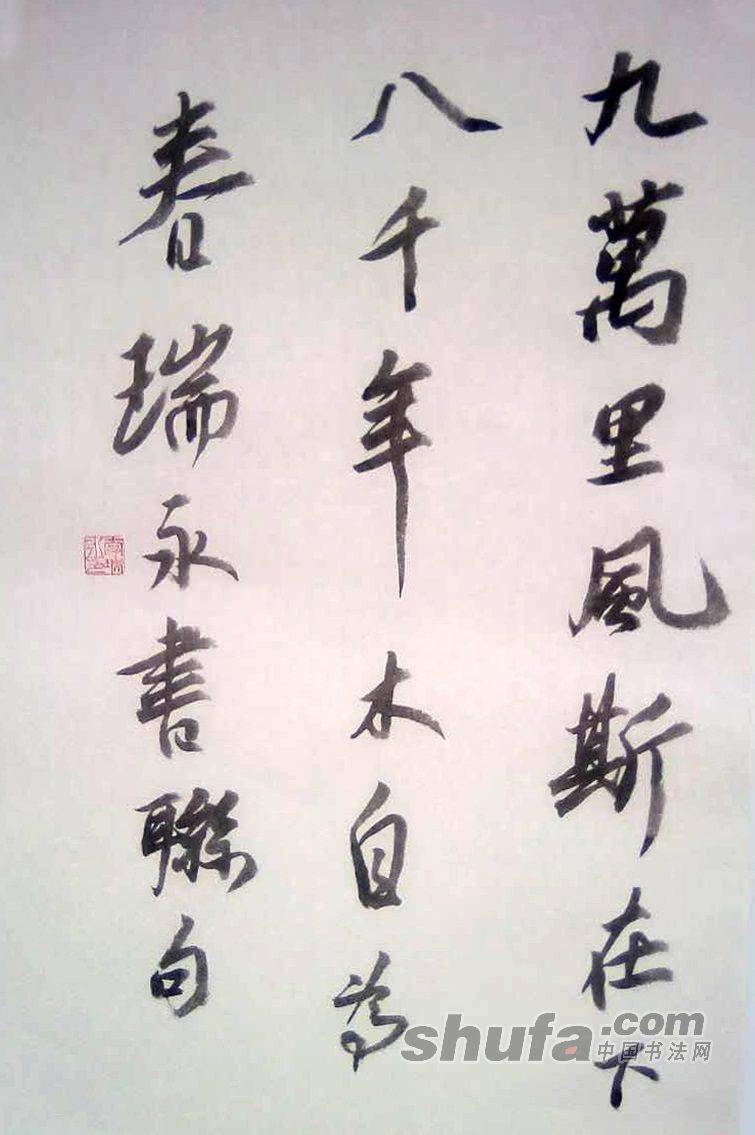 九萬里風斯在下
八千年木自為
春瑞永書聯句
shufa.com
中国书法网